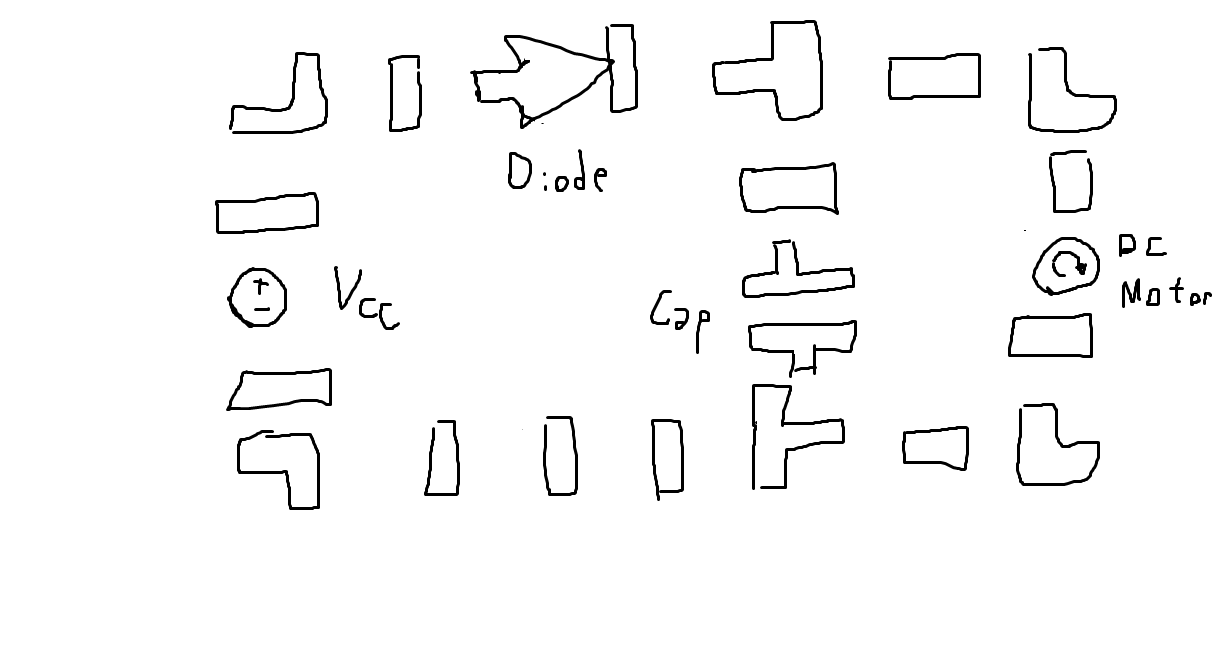 Diode
+
−
Vcc
Cap
DC
Motor